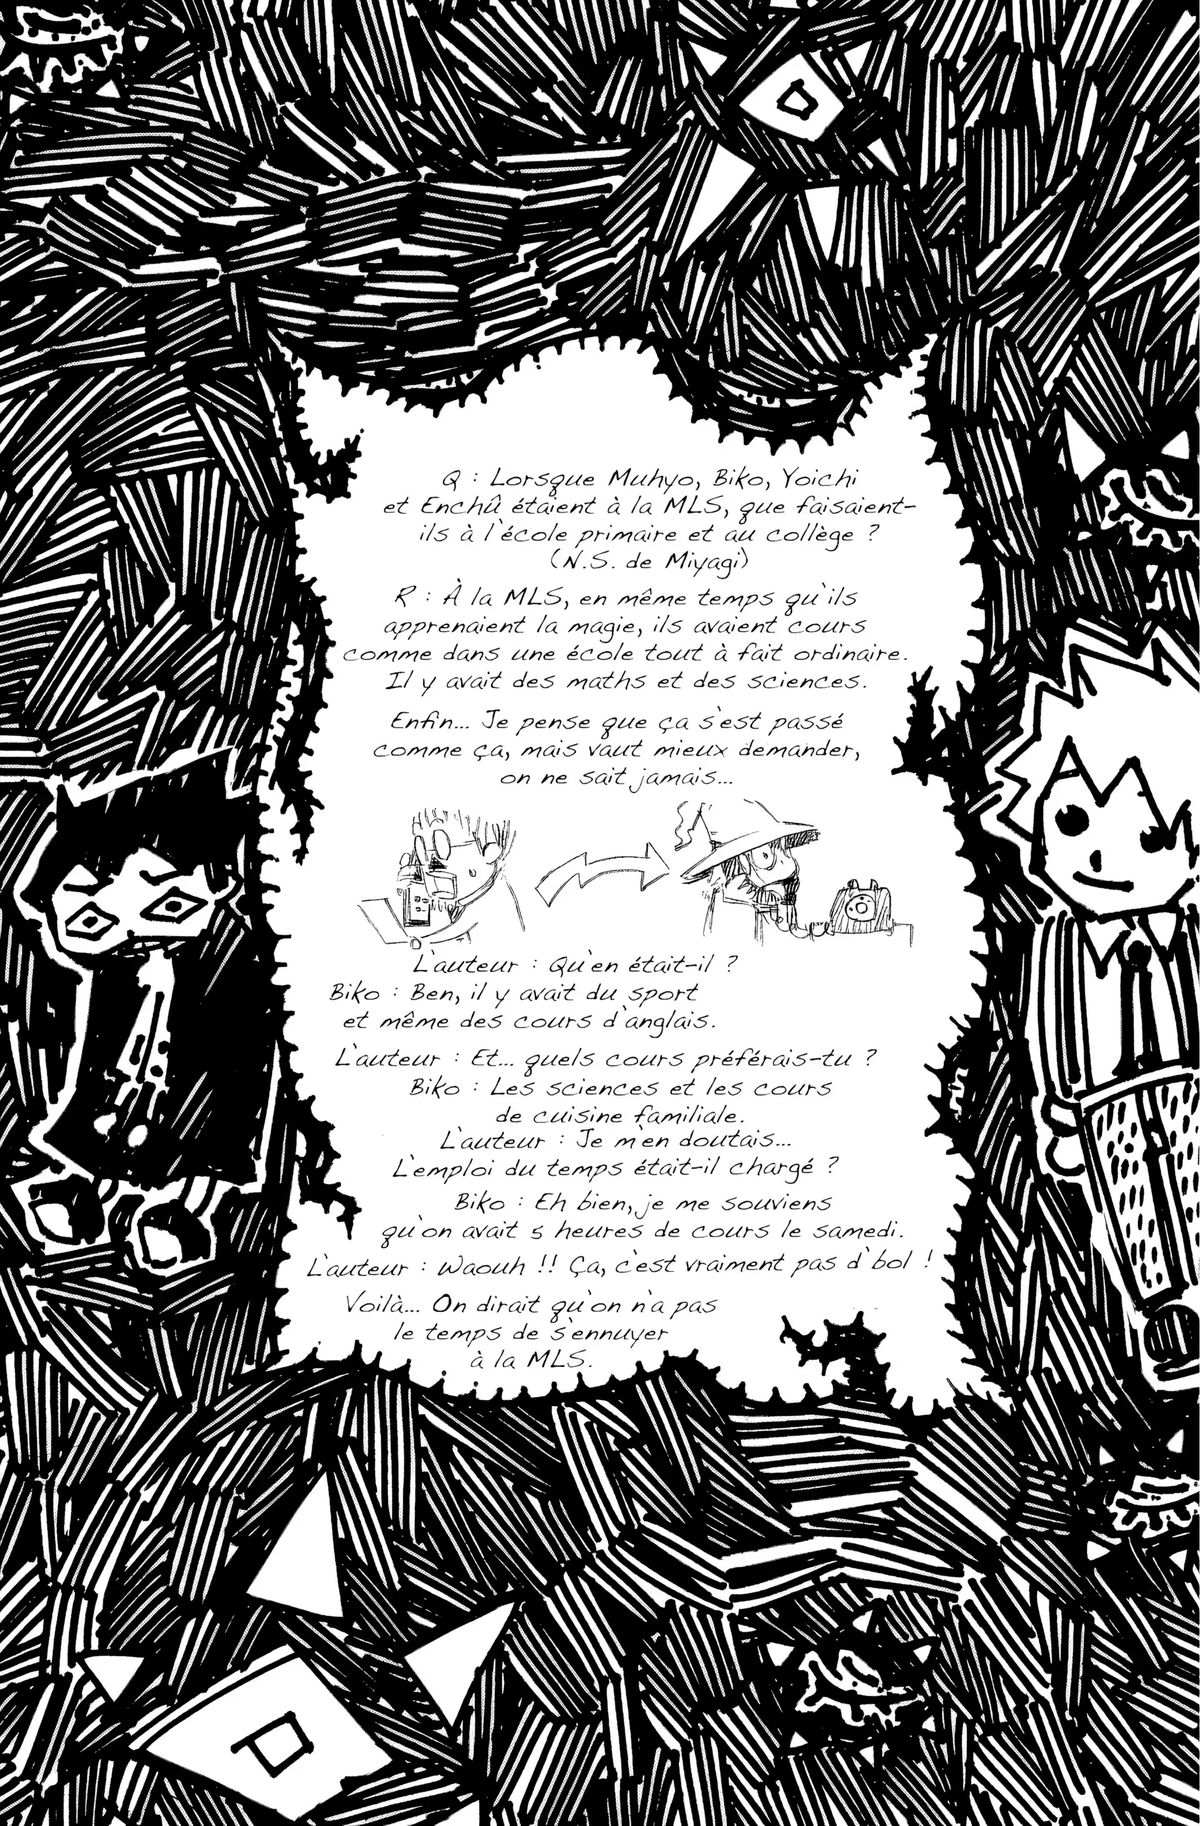 Q : Lorsque Muhyo, Biko, Yoichi
et Enchû étaient à la MLS, que faisaient-
ils à l'école primaire et au collège ?
(N.S. de Miyagi)
R : À la MLS, en même temps qu'ils
apprenaient la magie, ils avaient cours
comme dans une école tout à fait ordinaire.
Il y avait des maths et des sciences.
Enfin... Je pense que ça s'est passé
comme ça, mais vaut mieux demander,
on ne sait jamais...
L'auteur : Qu'en était-il ?
Biko : Ben, il y avait du sport
et même des cours d'anglais.
L'auteur : Et... quels cours préférais-tu ?
Biko : Les sciences et les cours
de cuisine familiale.
L'auteur : Je m'en doutais...
L'emploi du temps était-il chargé ?
Biko : Eh bien, je me souviens
qu'on avait 5 heures de cours le samedi.
L'auteur : Waouh !! Ça, c'est vraiment pas d'bol !
Voilà... On dirait qu'on n'a pas
le temps de s'ennuyer
à la MLS.